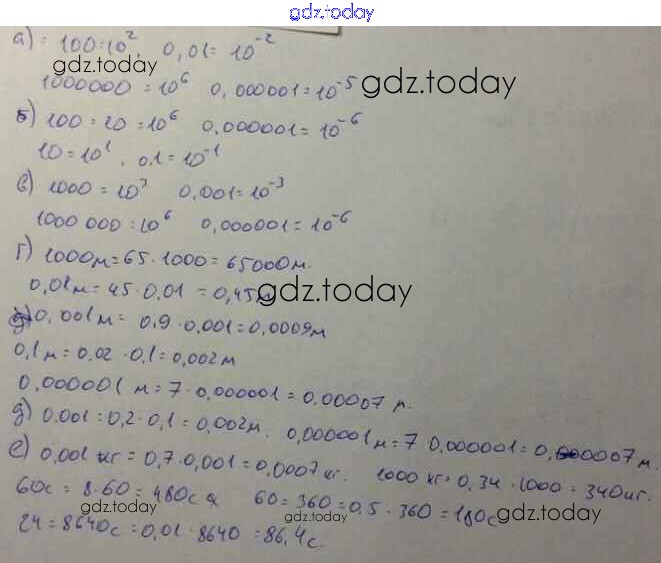 gdz.today
а) = 100 = 10², 0,01 = 10⁻²
gdz.today
1000000 = 10⁶ 0,000001 = 10⁻⁵ gdz.today
б) 100 = 10 = 10⁶ 0,000001 = 10⁻⁶
10 = 10¹, 0,1 = 10⁻¹
в) 1000 = 10³ 0,001 = 10⁻³
1000 000 = 10⁶ 0,000001 = 10⁻⁶
г) 1000м = 65 · 1000 = 65000м.
0,01м = 45 · 0,01 = 0,45м gdz.today
0,001м = 0,9 · 0,001 = 0,0009м
0,1м = 0,02 · 0,1 = 0,002м
0,000001 м = 7 · 0,000001 = 0,00007 м.
д) 0,001 = 0,2 · 0,1 = 0,002м. 0,000001м = 7 · 0,000001 = 0,000007 м.
е) 0,001 кг = 0,7 · 0,001 = 0,0007кг. 1000 кг = 0,34 · 1000 = 340кг.
60с = 8 · 60 = 480с 60 = 360 = 0,5 · 360 = 180с
gdz.today gdz.today gdz.today
24 = 8640с = 0,01 · 8640 = 86,4с.